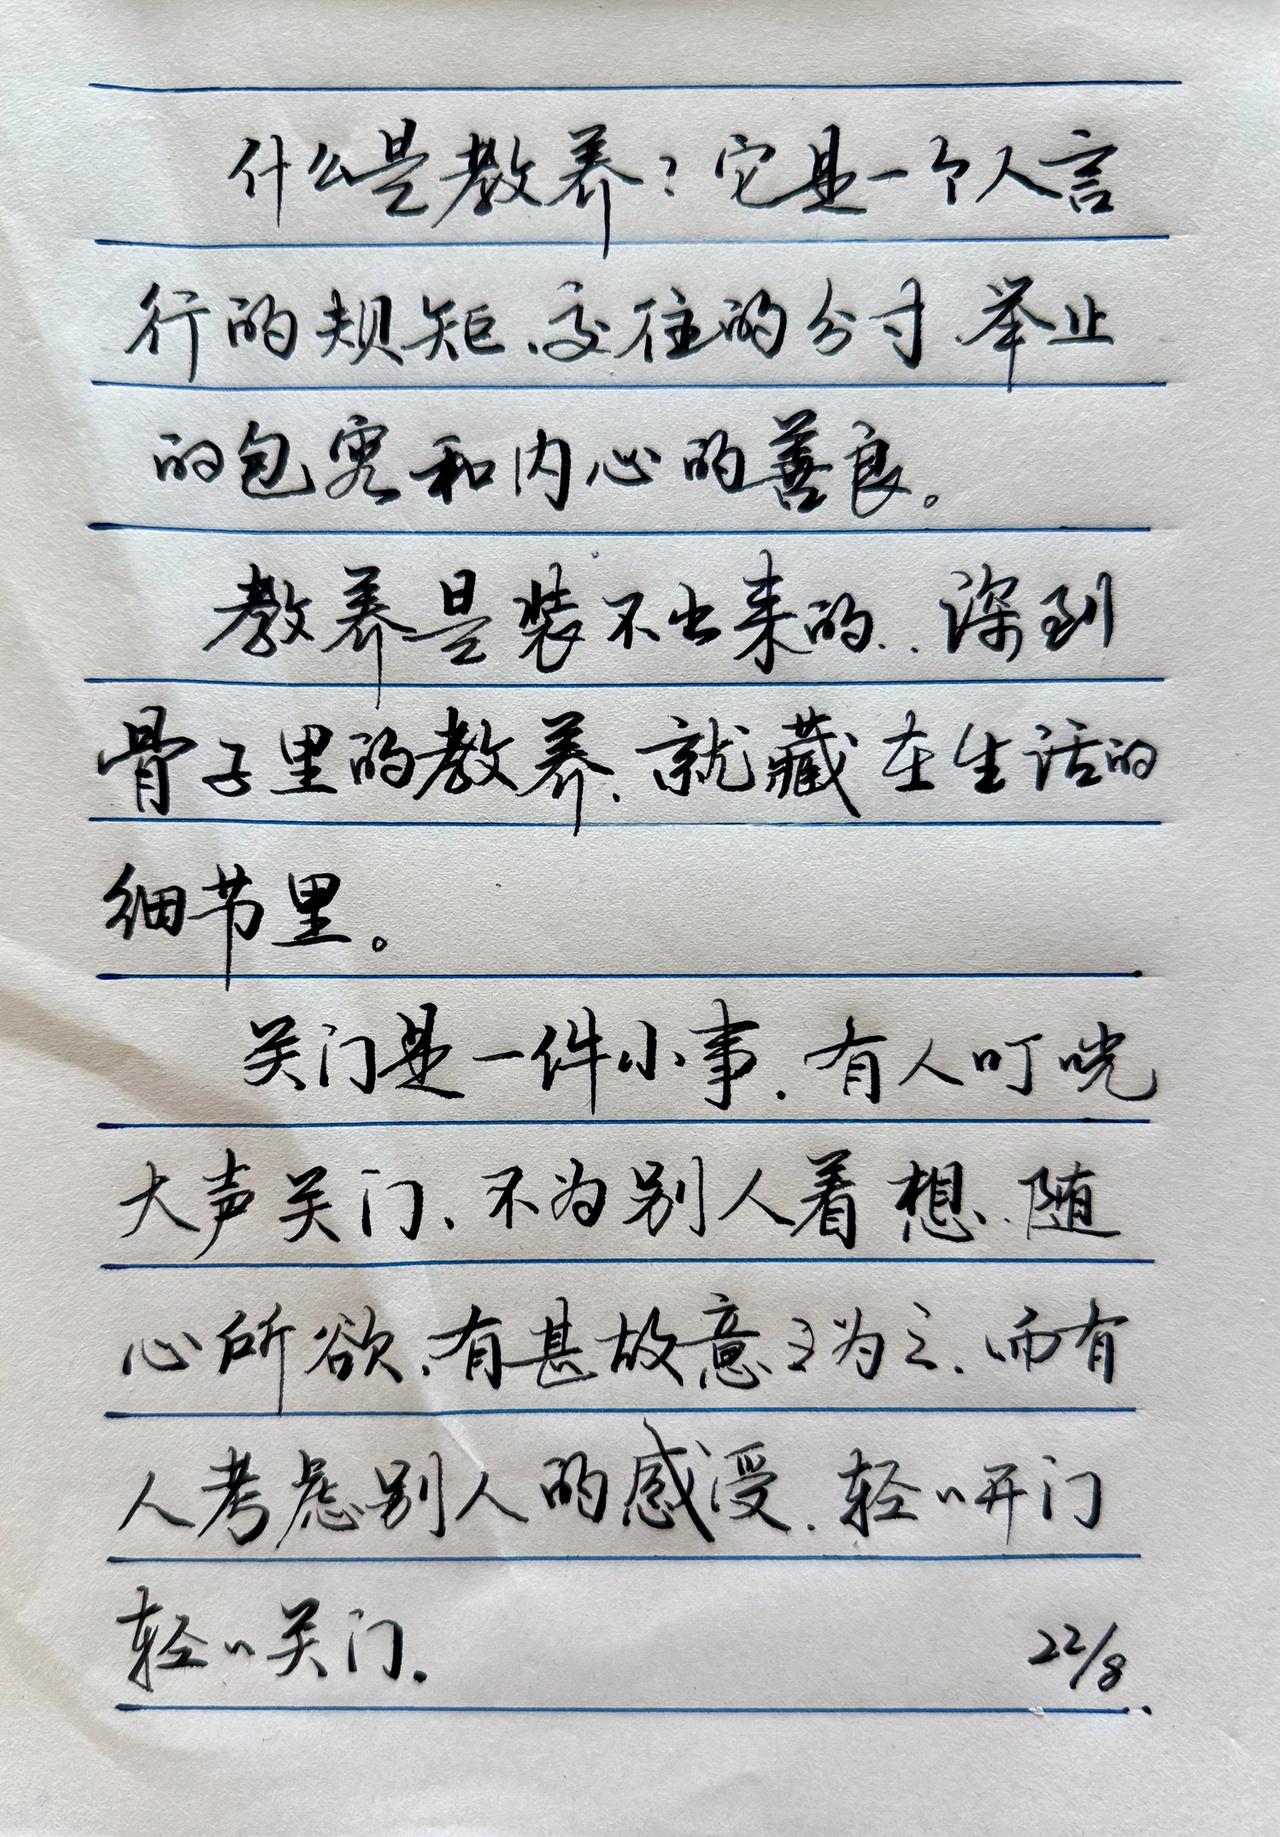 什么是教养？它是一个人言
行的规矩、交往的分寸、举止
的包容和内心的善良。
教养是装不出来的..深到
骨子里的教养、就藏在生活的
细节里。
关门是一件小事.有人叮咣
大声关门、不为别人着想、随
心所欲、有甚故意为之、而有
人考虑别人的感受.轻〃开门
轻〃关门.
22/8.